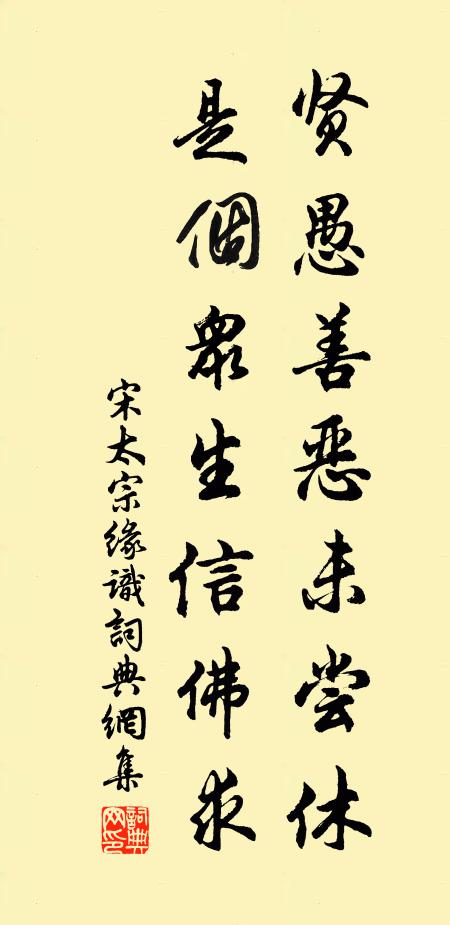 贤愚善恶未尝休
是個眾生信佛求
宋太宗缘識詞典網集
詞典网印